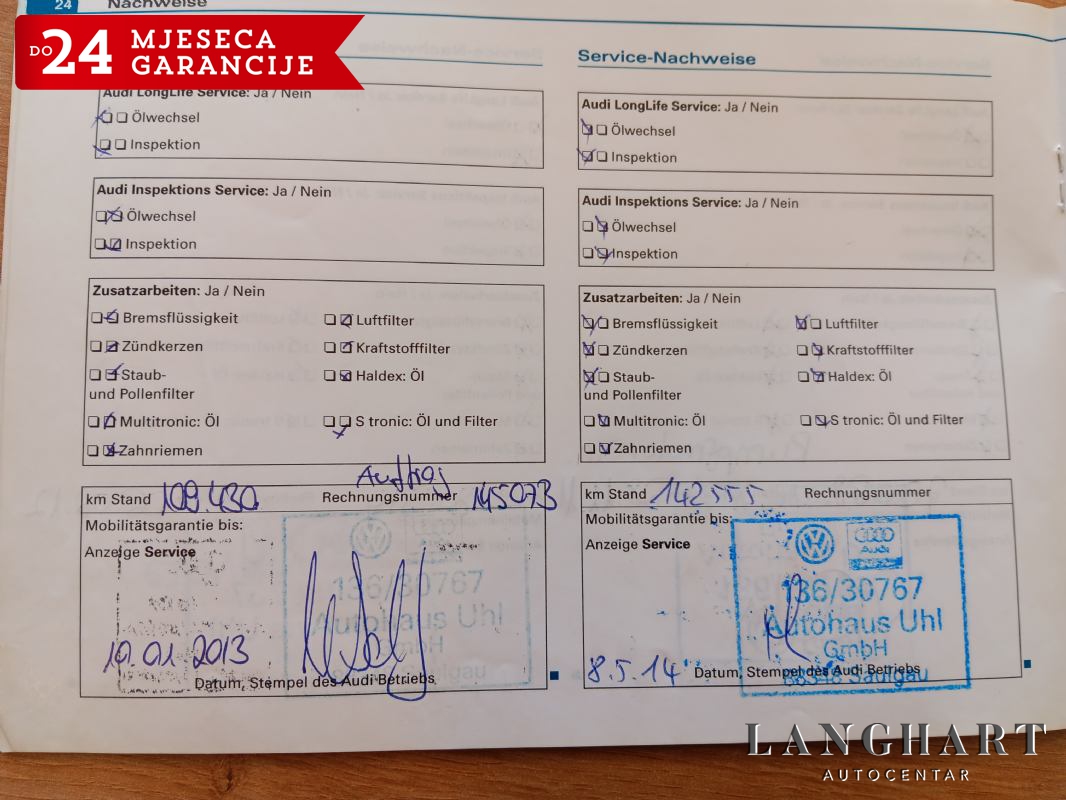 24
Nachweise
DO 24 MJESECA
GARANCIJE
Audi LongLife Service: Ja / Nein
Ölwechsel
Inspektion
Audi Inspektions Service: Ja / Nein
Ölwechsel
Inspektion
Zusatzarbeiten: Ja / Nein
Bremsflüssigkeit Luftfilter
Zündkerzen Kraftstofffilter
Staub- Haldex: Öl
und Pollenfilter
Multitronic: Öl S tronic: Öl und Filter
Zahnriemen
Auftrag
km Stand 109.430 Rechnungsnummer 145073
Mobilitätsgarantie bis:
Anzeige Service
136/30767
Autohaus Uhl
GmbH
Saulgau
10.01.2013
Datum, Stempel des Audi Betriebs
Service-Nachweise
Audi LongLife Service: Ja / Nein
Ölwechsel
Inspektion
Audi Inspektions Service: Ja / Nein
Ölwechsel
Inspektion
Zusatzarbeiten: Ja / Nein
Bremsflüssigkeit Luftfilter
Zündkerzen Kraftstofffilter
Staub- Haldex: Öl
und Pollenfilter
Multitronic: Öl S tronic: Öl und Filter
Zahnriemen
km Stand 142555 Rechnungsnummer
Mobilitätsgarantie bis:
Anzeige Service
Audi
136/30767
Autohaus Uhl
GmbH
88348 Saulgau
8.5.14 Datum, Stempel des Audi Betriebs
LANGHART
AUTOCENTAR